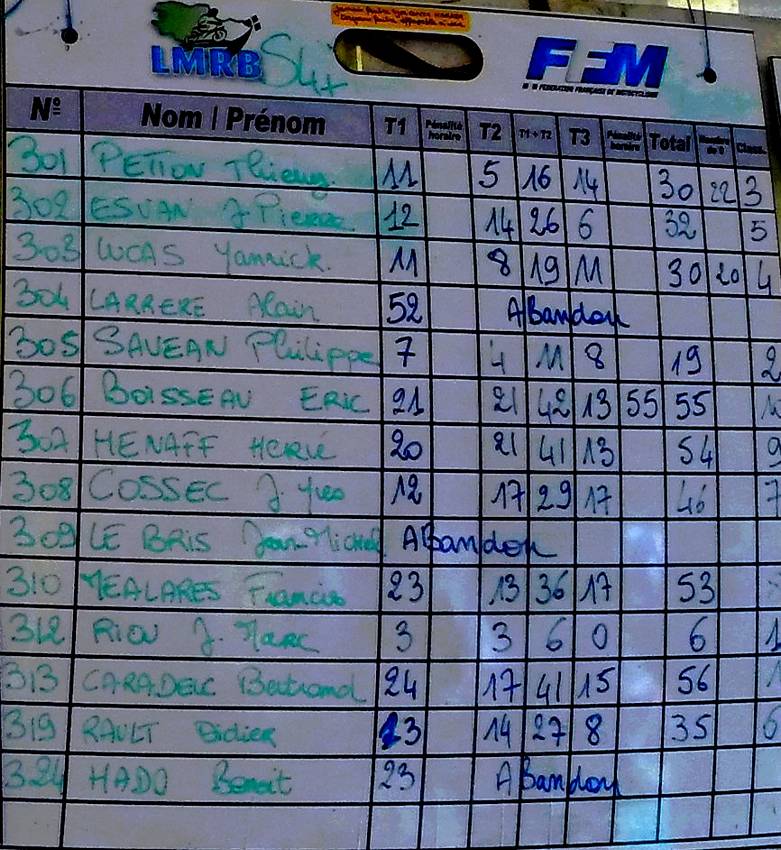 LMRB S4+ FFM
FEDERATION FRANÇAISE DE MOTOCYCLISME
N° Nom / Prénom T1 Pénalité horaire T2 T1 + T2 T3 Pénalité horaire Total Nombre de 0 Class.
301 PETION Thierry 11 5 16 14 30 22 3
302 ESVAN J Pierre 12 14 26 6 32 5
303 LUCAS Yannick. 11 8 19 11 30 20 4
304 LARRERE Alain 52 ABandon
305 SAVEAN Philippe 7 4 11 8 19 2
306 BOISSEAU ERIC 21 21 42 13 55 55
307 HENAFF Hervé 20 21 41 13 54 9
308 COSSEC J. Yves 12 17 29 17 46 7
309 LE BRIS Jean-Michel ABandon
310 MEALARES Francis 23 13 36 17 53
312 RIOU J. Marc 3 3 6 0 6 1
313 CARADEC Bertrand 24 17 41 15 56
319 RAULT Didier 13 14 27 8 35 6
324 HADO Benoit 23 ABandon